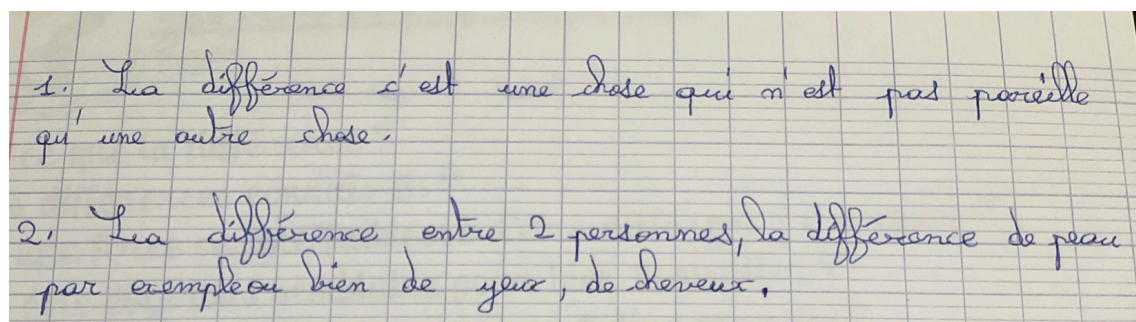 1. La différance c'est une chose qui n'est pas pareille
qu'une autre chose.
2. La différence entre 2 personnes, la différance de peau
par exemple ou bien de yeux, de cheveux.